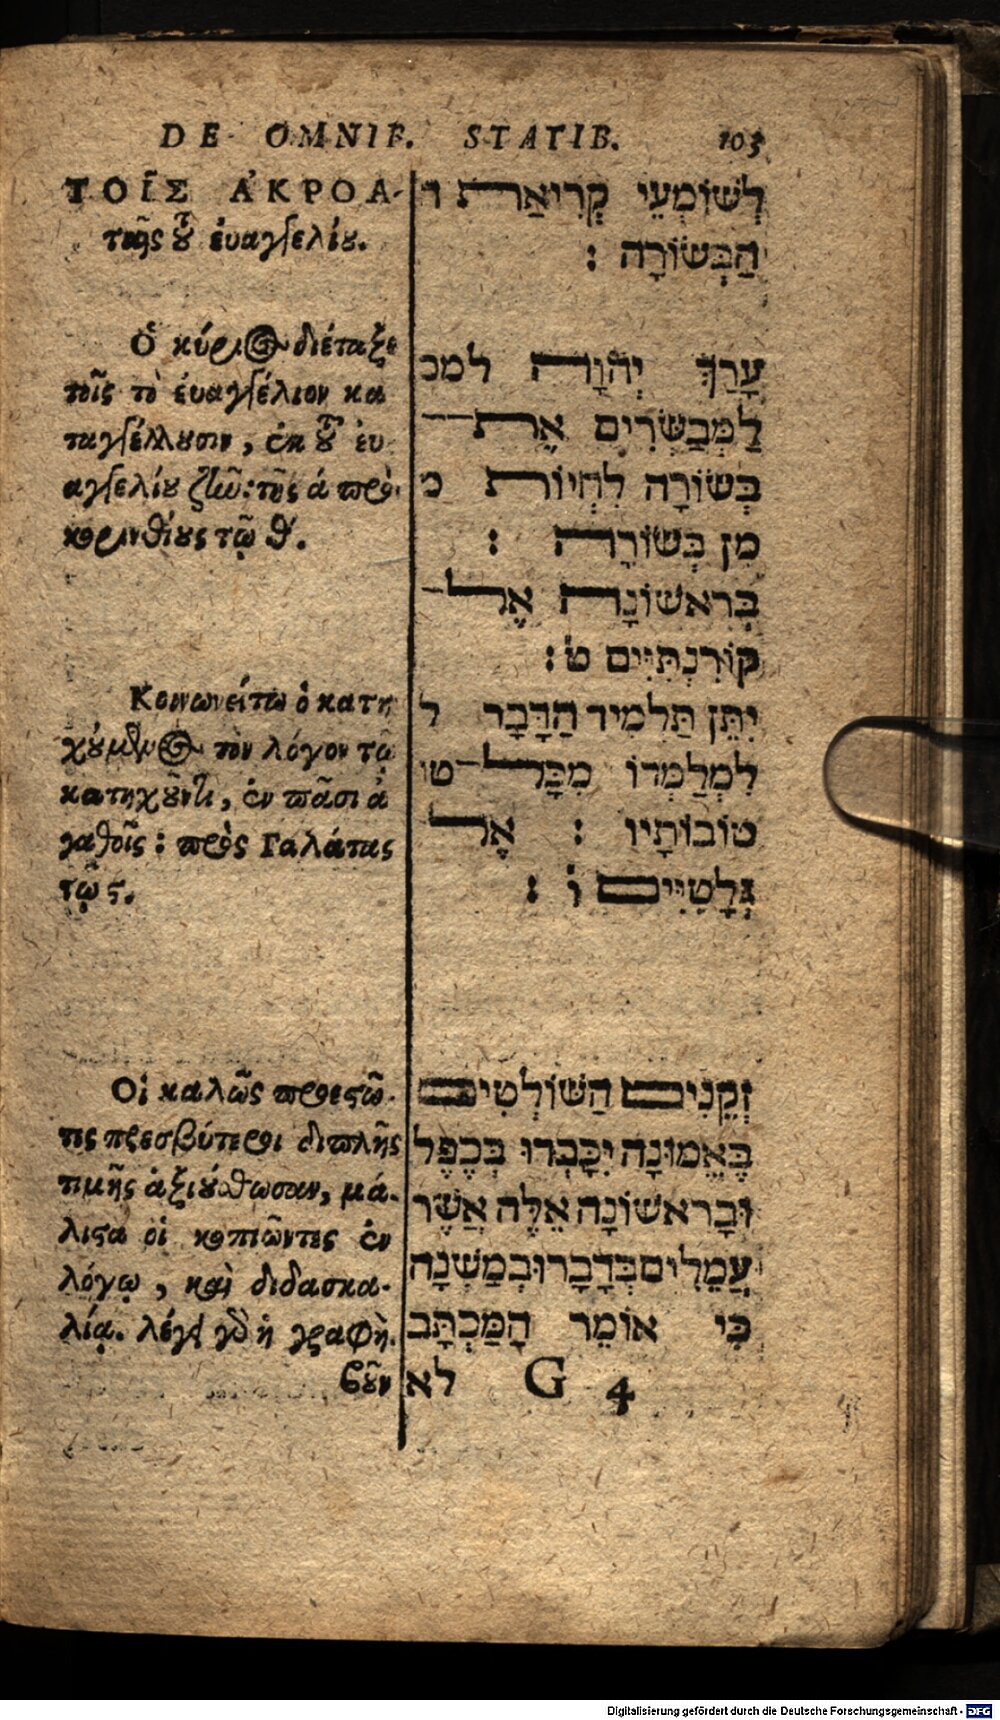 DE OMNIB. STATIB. 103
ΤΟΙ͂Σ ἈΚΡΟΑ-
ταῖς τοῦ ἐυαγγελίου.
Ὁ κύριος διέταξε
τοῖς τὸ ἐυαγγέλιον κα
ταγγέλλουσιν, ἐκ τοῦ ἐυ
αγγελίου ζῆν: τῆς ά πρὸς
κορινθίους τῷ θ'.
Κοινωνείτω ὁ κατη
χούμενος τὸν λόγον τῷ
κατηχοῦντι, ἐν πᾶσι ἀ
γαθοῖς: πρὸς Γαλάτας
τῷ ς.
Οἱ καλῶς προεστῶ-
τες πρεσβύτεροι διπλῆς
τιμῆς ἀξιούσθωσαν, μά-
λιστα οἱ κοπιῶντες ἐν
λόγῳ, καὶ διδασκα-
λίᾳ. λέγει γὰρ ἡ γραφὴ.
βοῦν
לְשׁוֹמְעֵי קְרִיאַת ו
הַבְּשׂוֹרָה :
עָרַךְ יְהֹוָה למכ
לַמְּבַשְּׂרִים אֶת
בְּשׂוֹרָה לִחְיוֹת מ
מִן בְּשׂוֹרָה :
בְּרִאשׁוֹנָה אֶל
קוֹרִנְתִּיִּים ט :
יִתֵּן תַּלְמִיד הַדָּבָר ל
לִמְלַמְּדוֹ מִכָּל טו
טוֹבוֹתָיו : אֶל
גְּלָטִיִּים ו :
זְקֵנִים הַשּׁוֹלְטִים
בֶּאֱמוּנָה יִכָּבְדוּ בְּכֶפֶל
וּבָרִאשׁוֹנָה אֵלֶּה אֲשֶׁר
עֲמֵלִים בְּדָבָר וּבְמִשְׁנָה
כִּי אוֹמֵר הַמִּכְתָּב
לא
G 4
Digitalisierung gefördert durch die Deutsche Forschungsgemeinschaft - DFG